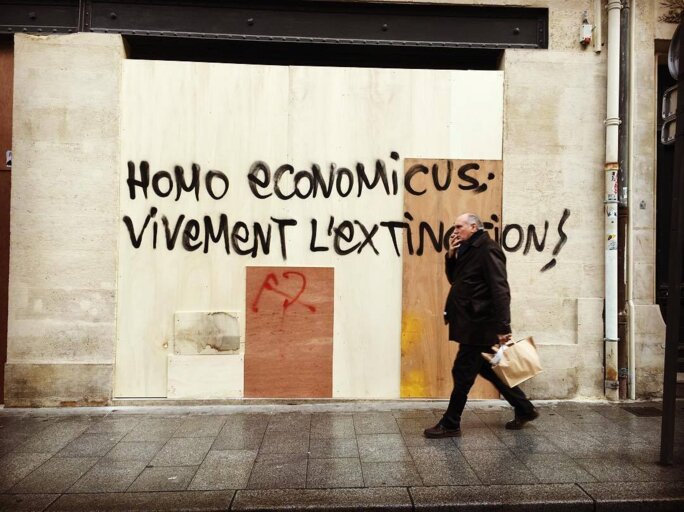 HOMO ECONOMICUS:
VIVEMENT L'EXTINCTION!